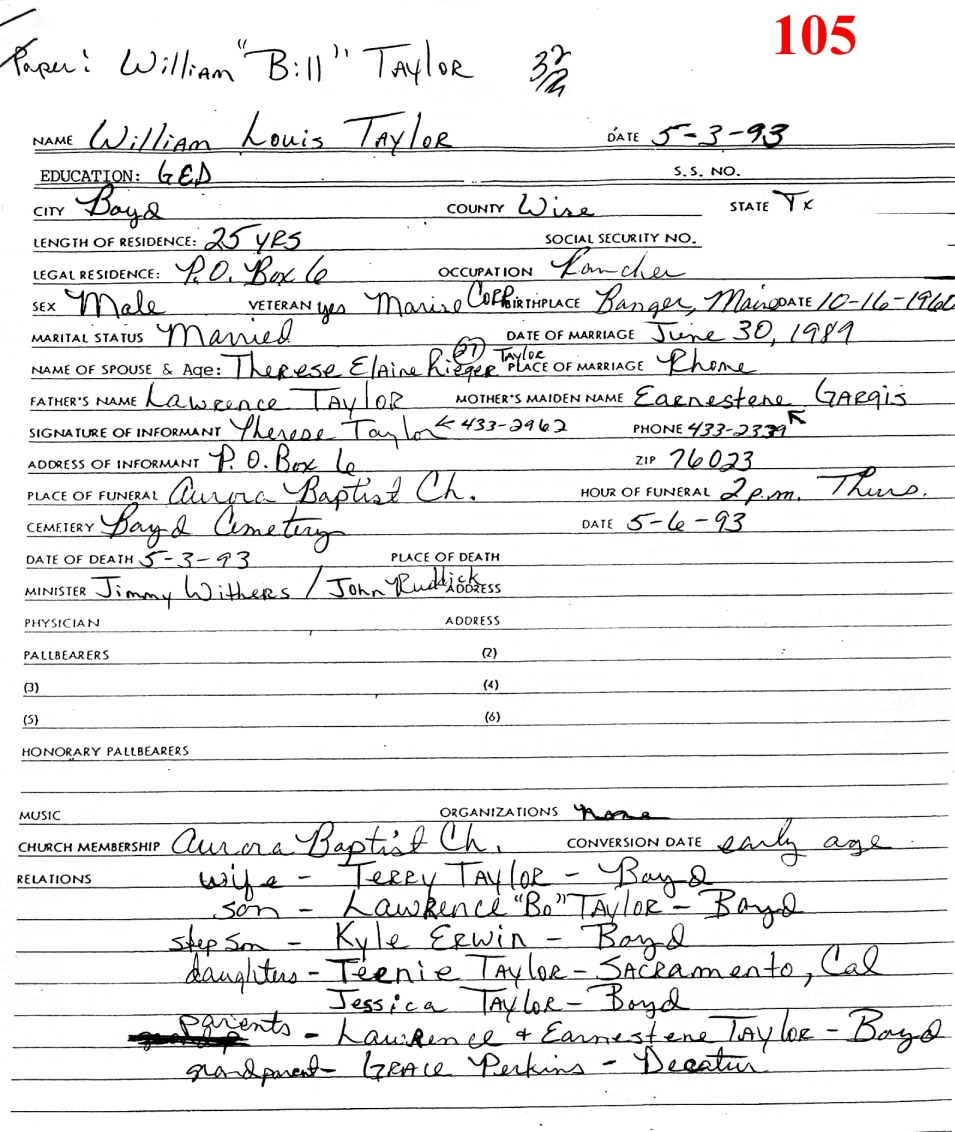 105
Paper: William "Bill" Taylor 32/12
NAME William Louis Taylor DATE 5-3-93
EDUCATION: GED S.S. NO.
CITY Boyd COUNTY Wise STATE Tx
LENGTH OF RESIDENCE: 25 YRS SOCIAL SECURITY NO.
LEGAL RESIDENCE: P.O. Box 6 OCCUPATION Rancher
SEX Male VETERAN yes Marine Corp BIRTHPLACE Banger, Maine DATE 10-16-1960
MARITAL STATUS Married DATE OF MARRIAGE June 30, 1989
NAME OF SPOUSE & Age: Therese Elaine Rieger (37) Taylor PLACE OF MARRIAGE Rhome
FATHER'S NAME Lawrence Taylor MOTHER'S MAIDEN NAME Earnestene Gargis
SIGNATURE OF INFORMANT Therese Taylor ← 433-2962 PHONE 433-2339
ADDRESS OF INFORMANT P.O. Box 6 ZIP 76023
PLACE OF FUNERAL Aurora Baptist Ch. HOUR OF FUNERAL 2 p.m. Thurs.
CEMETERY Boyd Cemetery DATE 5-6-93
DATE OF DEATH 5-3-93 PLACE OF DEATH
MINISTER Jimmy Withers / John Ruddick ADDRESS
PHYSICIAN ADDRESS
PALLBEARERS (2)
(3) (4)
(5) (6)
HONORARY PALLBEARERS
MUSIC ORGANIZATIONS none
CHURCH MEMBERSHIP Aurora Baptist Ch. CONVERSION DATE early age
RELATIONS wife - Terry Taylor - Boyd
son - Lawrence "Bo" Taylor - Boyd
step son - Kyle Erwin - Boyd
daughters - Teenie Taylor - Sacramento, Cal
Jessica Taylor - Boyd
parents - Lawrence + Earnestene Taylor - Boyd
grandparent - Grace Perkins - Decatur